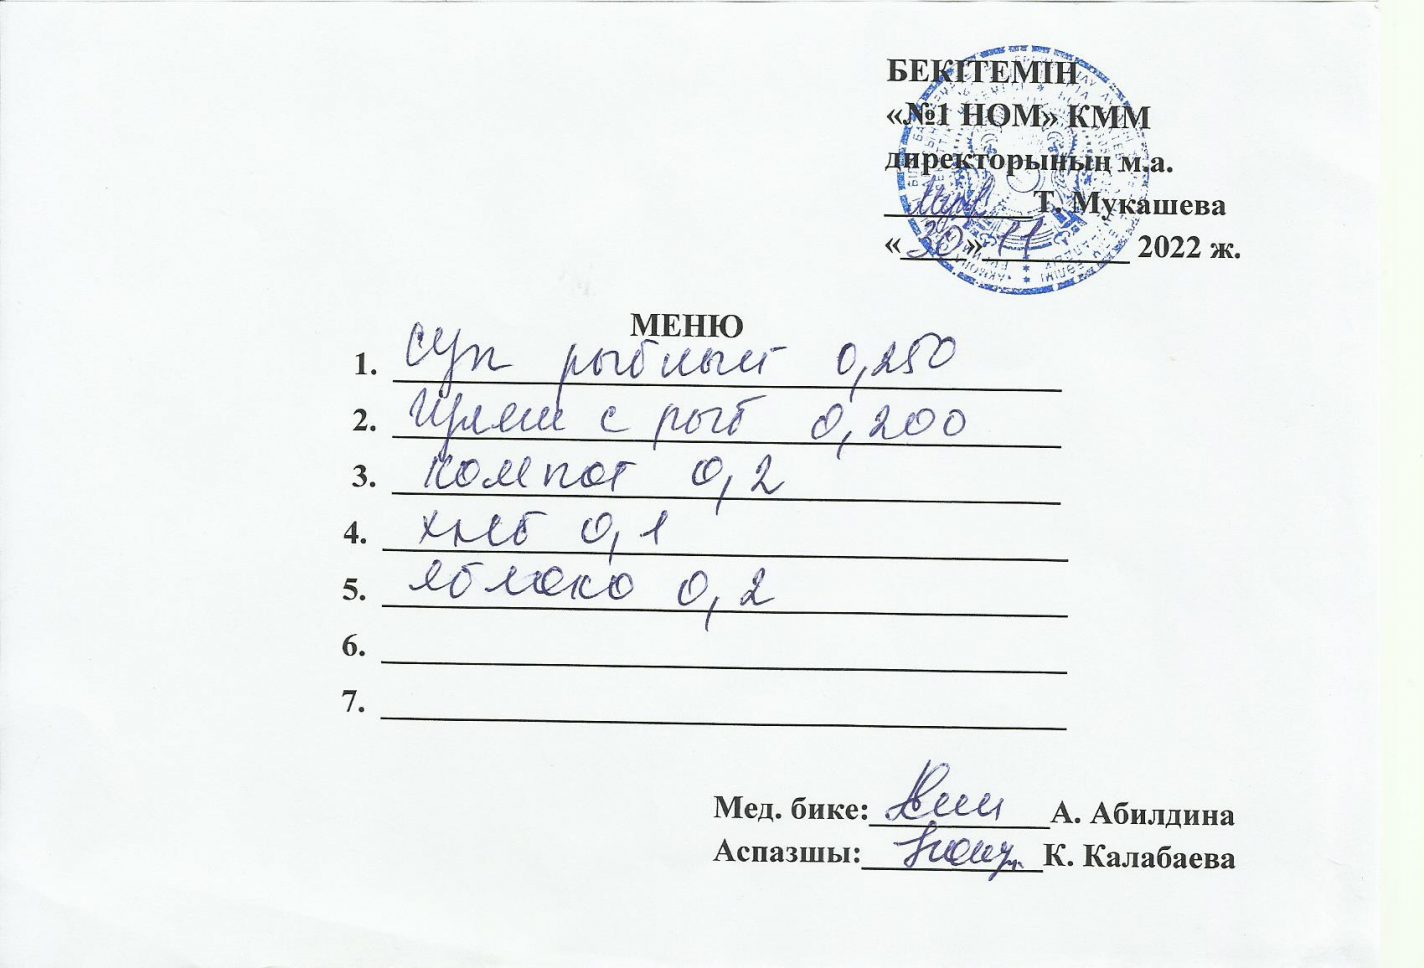 БЕКІТЕМІН
«№1 НОМ» КММ
директорының м.а.
Т. Мукашева
«30» 11 2022 ж.
МЕНЮ
1. суп рыбный 0,250
2. с рыб 0,200
3. компот 0,2
4. хлеб 0,1
5. яблоко 0,2
6.
7.
Мед. бике: А. Абилдина
Аспазшы: К. Калабаева